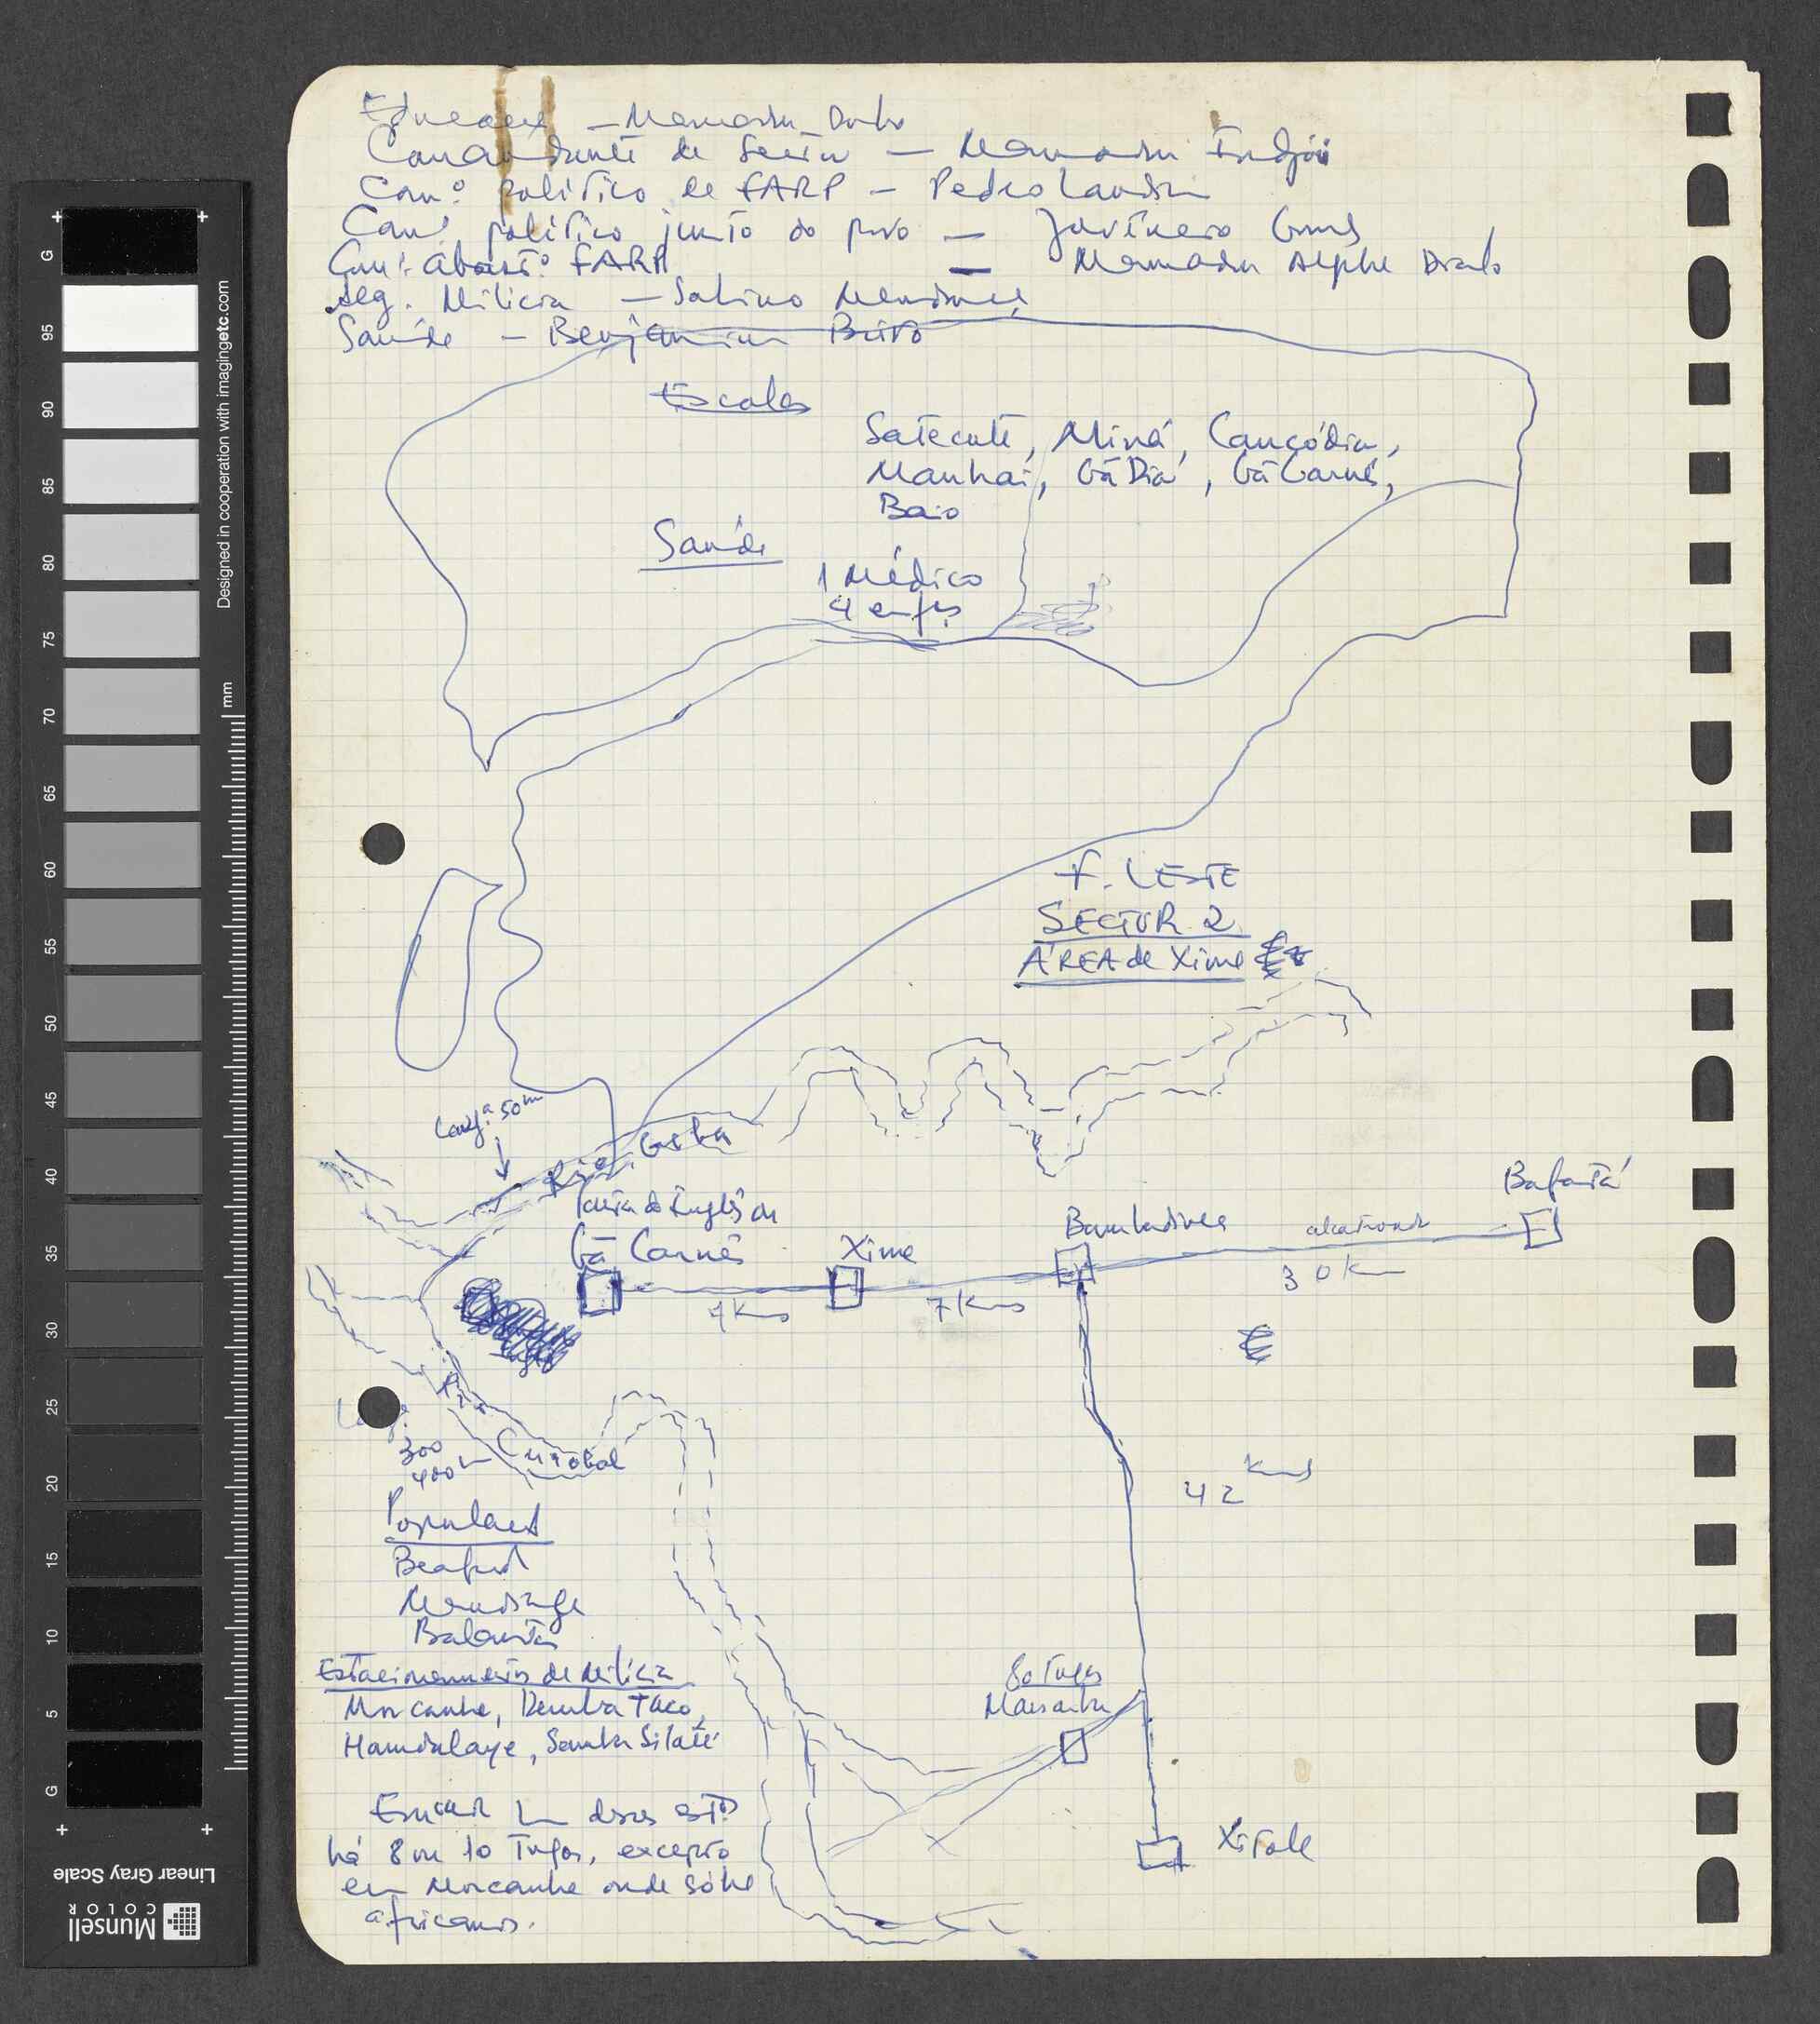 Educação — Mamadu Djalo
Comandante de Sector — Mamadu Indjai
Com.º político de FARP — Pedro Landim
Com. político junto do povo — Justiniano Gomes
Com. abast.º FARP — Mamadu Alpha Djalo
Seg. Milícia — Sabino Mendonça
Saúde — Benjamim Brito
Escolas
Satecuté, Miná, Cancódia,
Manhai, Gã Dia, Gã Carnés,
Baio
Saúde
1 Médico
4 enfs.
F. LESTE
SECTOR 2
ÁREA de Xime
Larg.ª 50m
Rio Geba
Ponta do Inglês ou
Gã Carnés
Xime
Bambadinca
alcatroada
Bafatá
4 Kms
7 Kms
30 Km
Larg.
300
400m
Rio Corobal
42 Kms
População
Beafad
Mandinga
Balanta
Estacionamentos de Milícia
Moricanhe, Demba Taco,
Hamdalaye, Samba Silaté
80 Tugas
Mansambo
Em cada um desses est.os
há 8 ou 10 Tugas, excepto
em Moricanhe onde só há
africanos.
Xitole
G
95
90
85
80
75
70
65
60
55
50
45
40
35
30
25
20
15
10
5
G
mm
Designed in cooperation with imagingetc.com
Linear Gray Scale
Munsell
COLOR